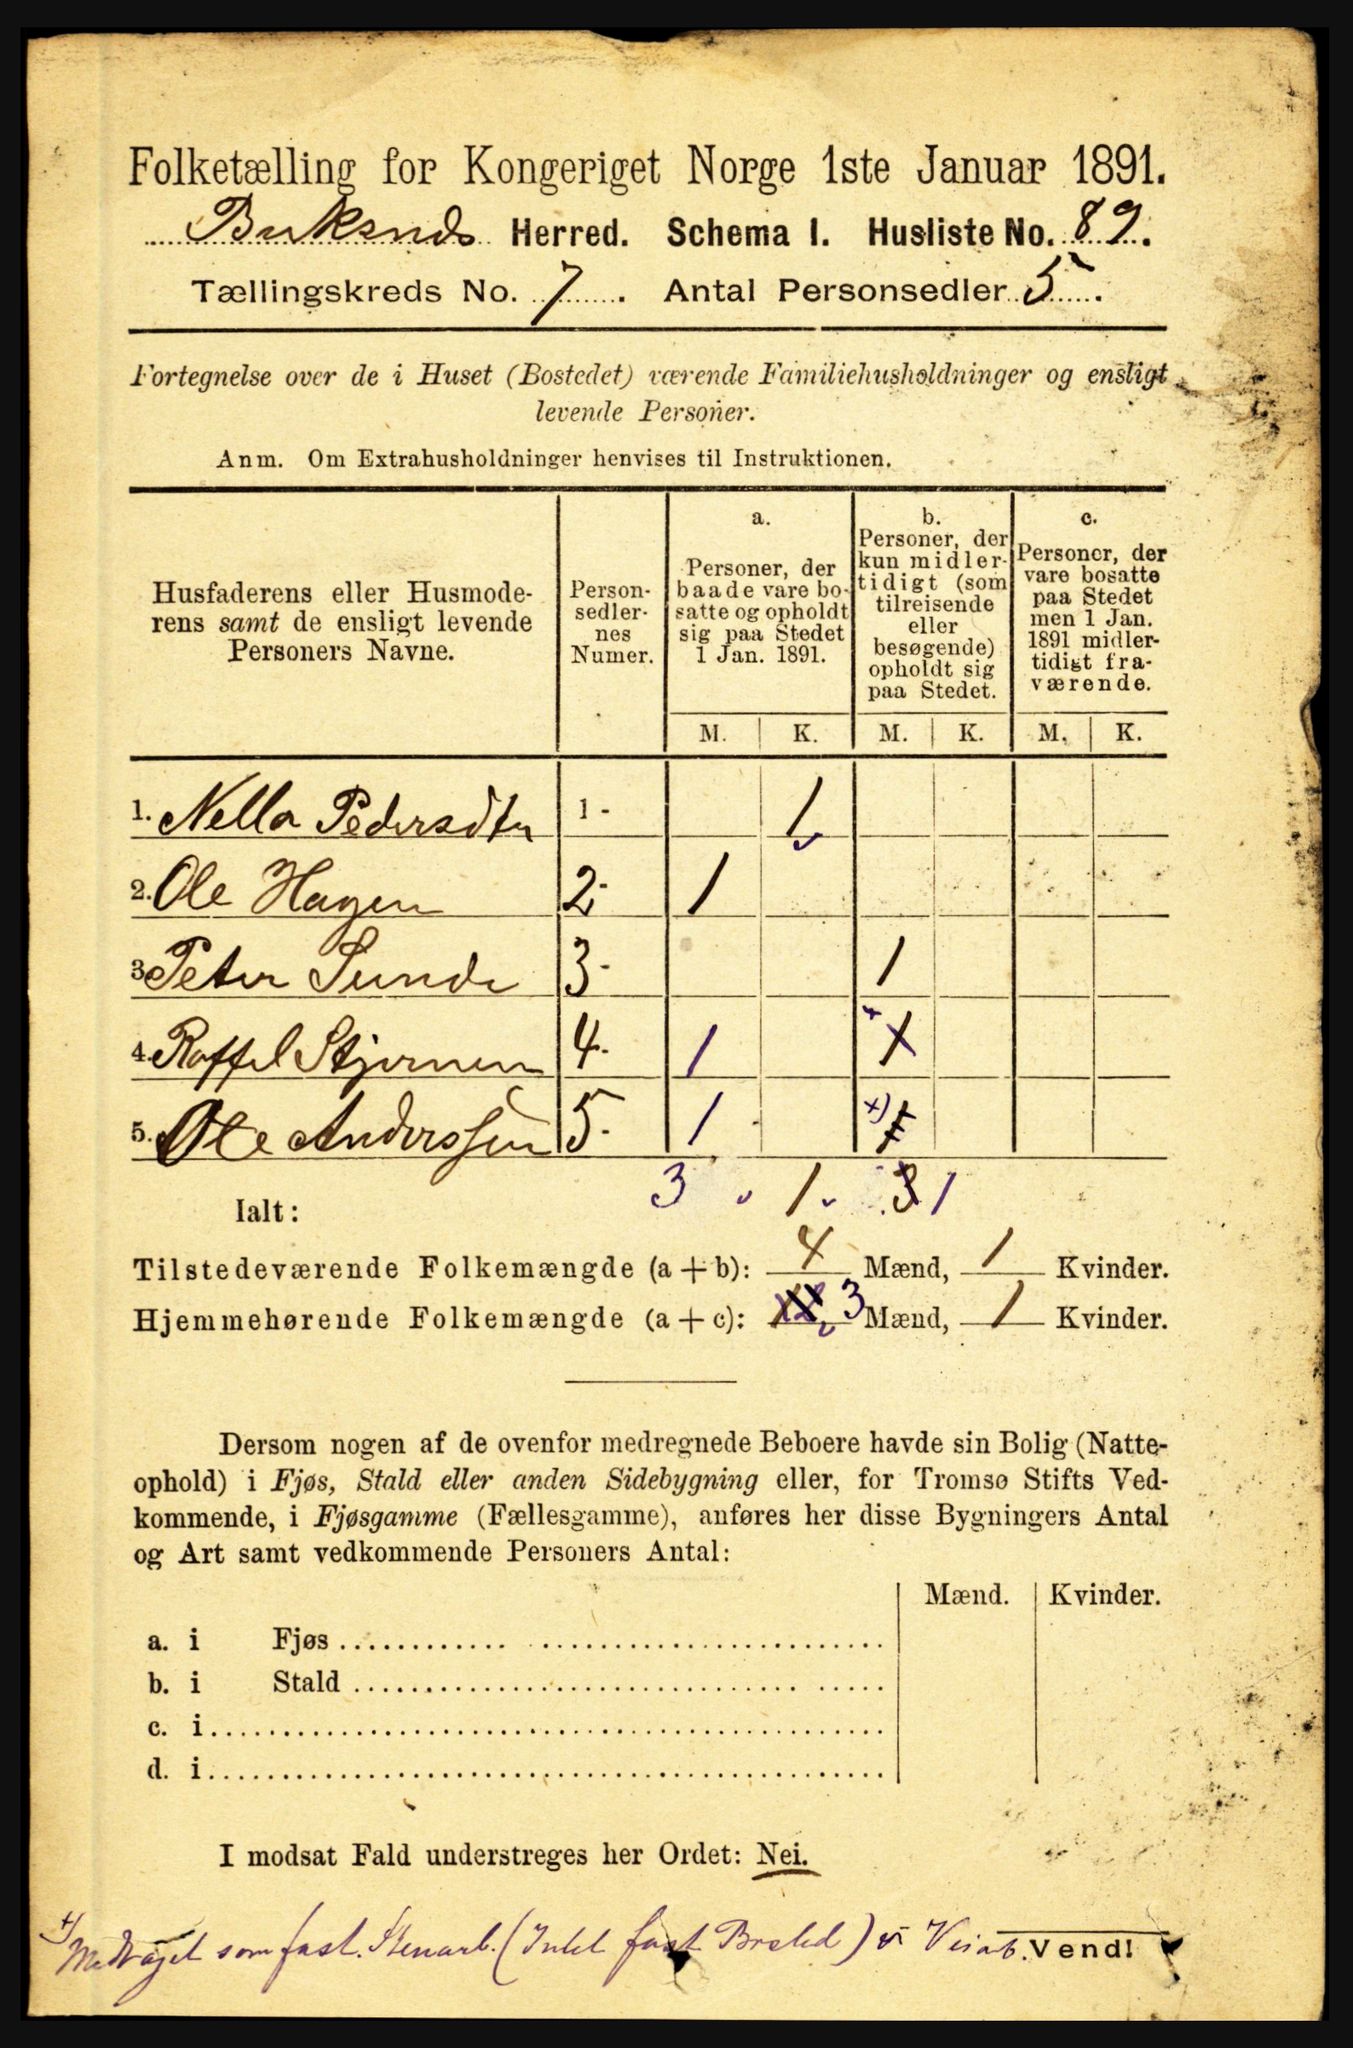 Folketælling for Kongeriget Norge 1ste Januar 1891.
Buksnæs Herred. Schema I. Husliste No. 89.
Tællingskreds No. 7. Antal Personsedler 5.
Fortegnelse over de i Huset (Bostedet) værende Familiehusholdninger og ensligt
levende Personer.
Anm. Om Extrahusholdninger henvises til Instruktionen.
Husfaderens eller Husmode-
rens samt de ensligt levende
Personers Navne.
Person-
sedler-
nes
Numer.
a.
Personer, der
baade vare bo-
satte og opholdt
sig paa Stedet
1 Jan. 1891.
b.
Personer, der
kun midler-
tidigt (som
tilreisende
eller
besøgende)
opholdt sig
paa Stedet.
c.
Personer, der
vare bosatte
paa Stedet
men 1 Jan.
1891 midler-
tidigt fra-
værende.
M. K. M. K. M. K.
1. Nella Pedersdtr 1 - 1
2. Ole Hagen 2- 1
3. Peter Sunde 3- 1
4. Raffel Stjernen 4- 1 1
5. Ole Anderssen 5- 1 x) 1
Ialt: 3 1 3 1
Tilstedeværende Folkemængde (a + b): 4 Mænd, 1 Kvinder.
Hjemmehørende Folkemængde (a + c): 3 Mænd, 1 Kvinder.
Dersom nogen af de ovenfor medregnede Beboere havde sin Bolig (Natte-
ophold) i Fjøs, Stald eller anden Sidebygning eller, for Tromsø Stifts Ved-
kommende, i Fjøsgamme (Fællesgamme), anføres her disse Bygningers Antal
og Art samt vedkommende Personers Antal:
Mænd. Kvinder.
a. i Fjøs
b. i Stald
c. i
d. i
I modsat Fald understreges her Ordet: Nei.
x) Medtaget som fast. (Intet fast Bosted)
Vend!